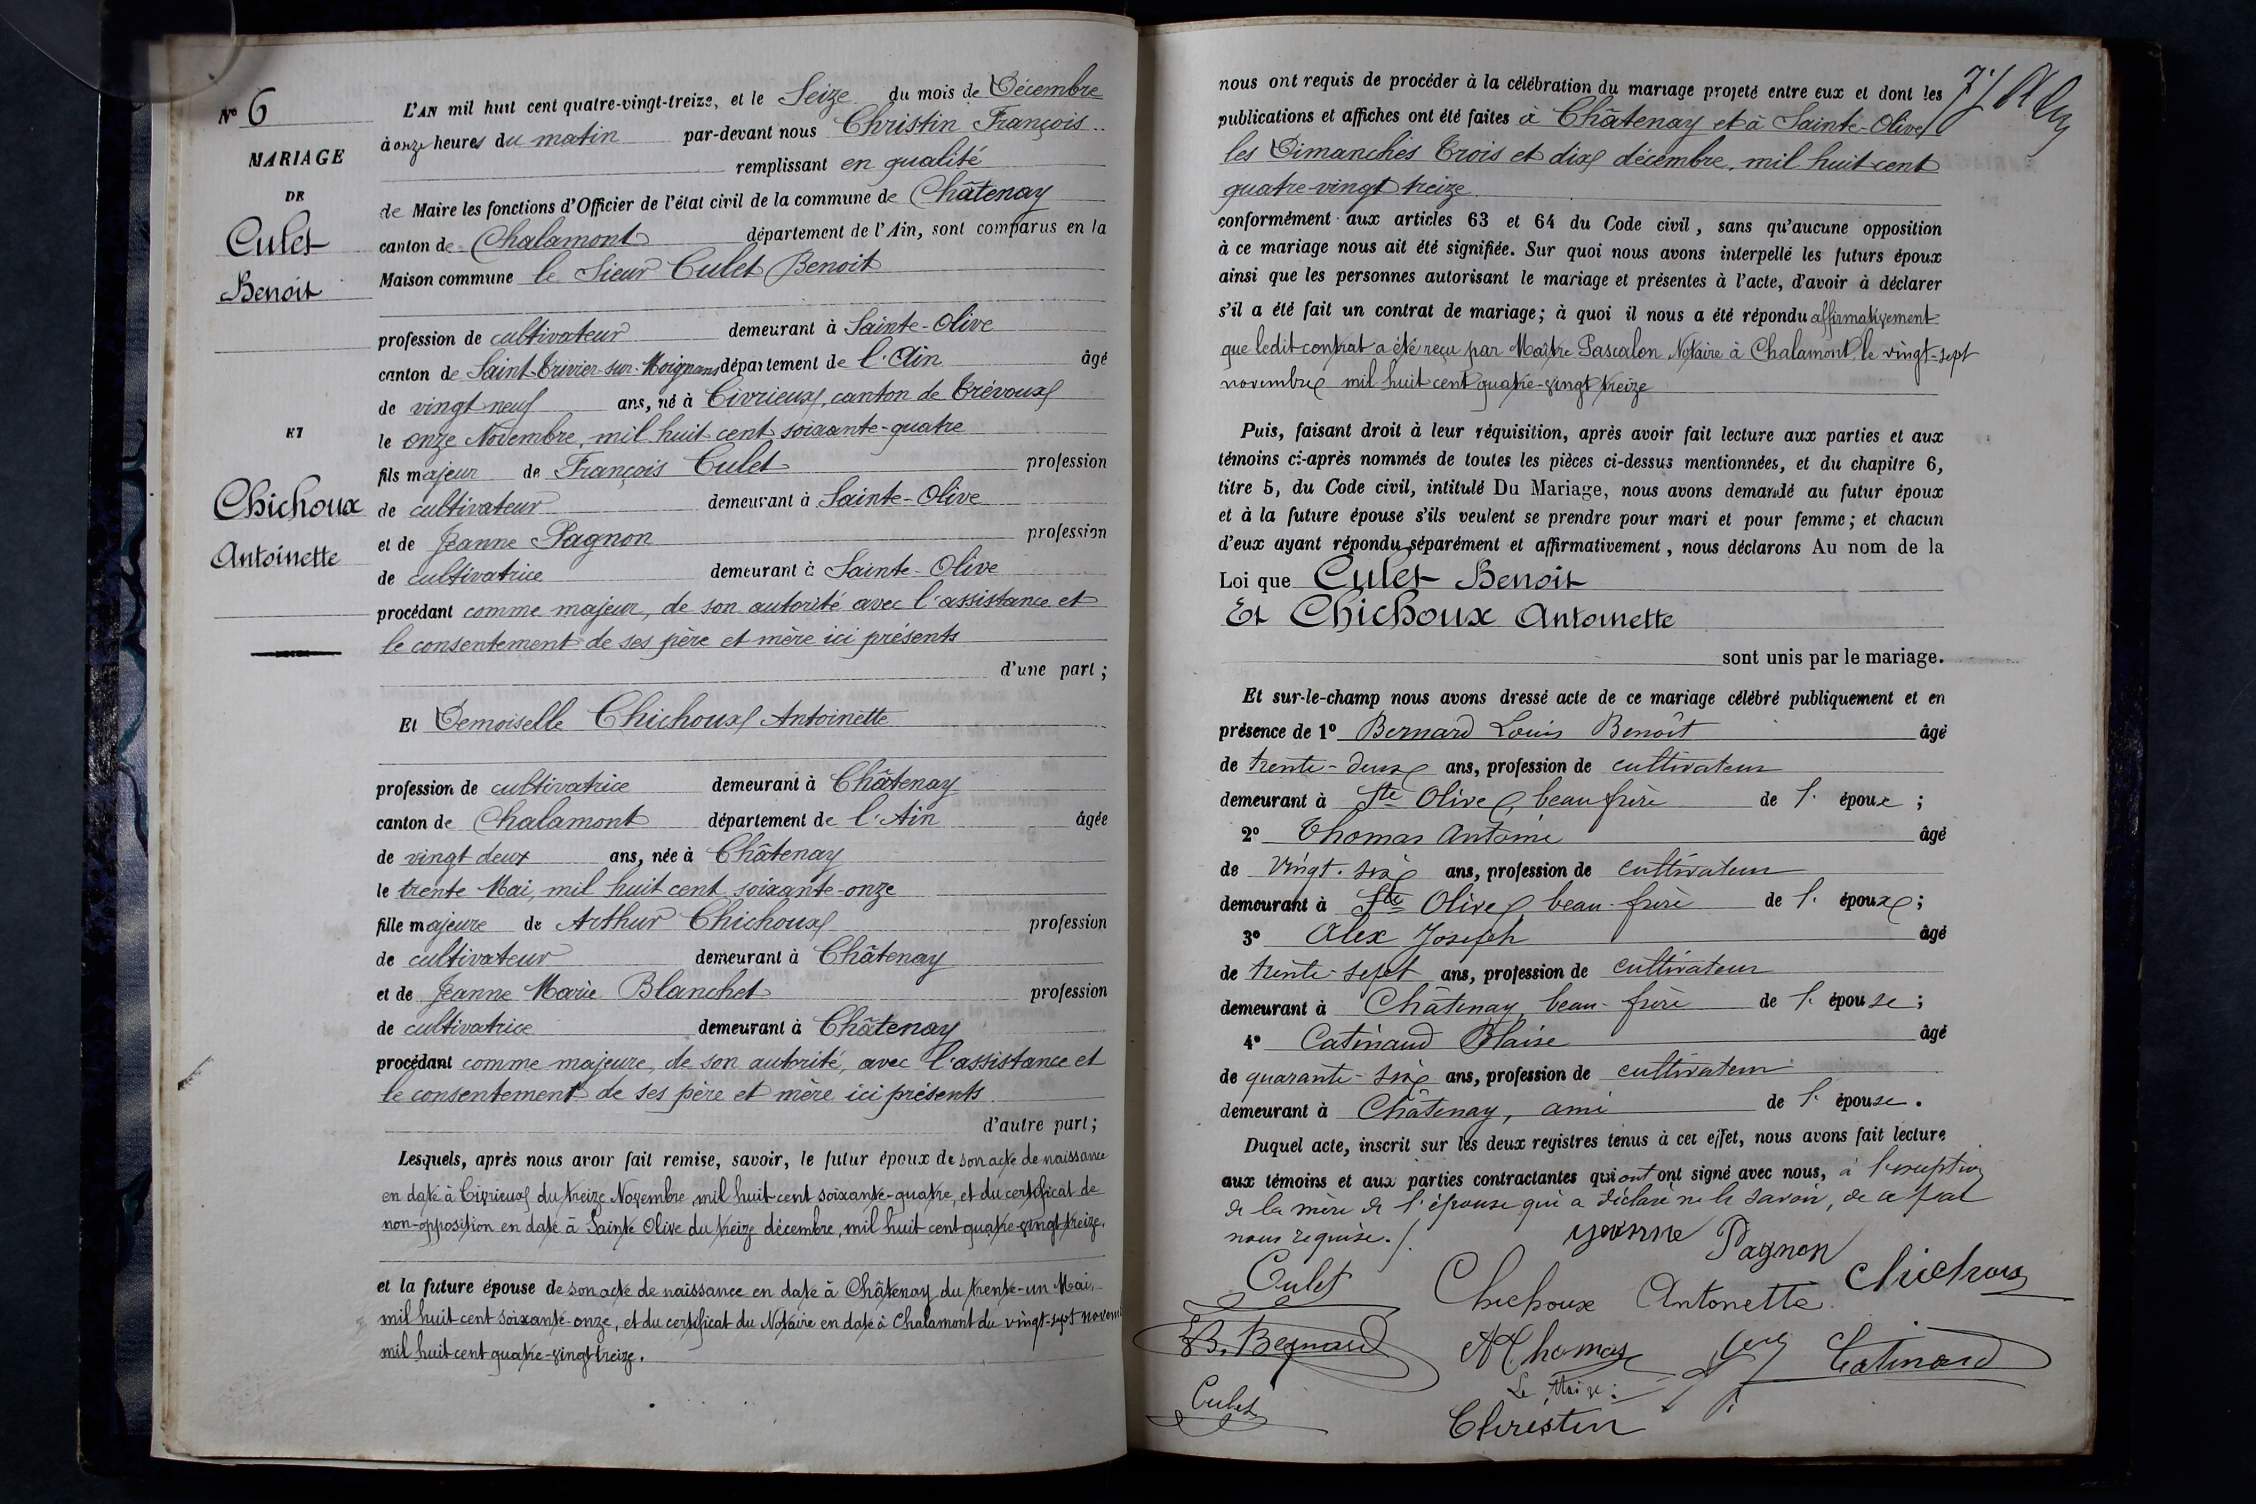 N° 6
MARIAGE
DE
Culet
Benoit
ET
Chichoux
Antoinette
L'AN mil huit cent quatre-vingt-treize, et le Seize du mois de Décembre
à onze heures du matin par-devant nous Christin François
remplissant en qualité
de Maire les fonctions d'Officier de l'état civil de la commune de Châtenay
canton de Chalamont département de l'Ain, sont comparus en la
Maison commune le Sieur Culet Benoit
profession de cultivateur demeurant à Sainte-Olive
canton de Saint-Trivier-sur-Moignans département de l'Ain âgé
de vingt neuf ans, né à Civrieux, canton de Trévoux
le onze Novembre, mil huit cent soixante-quatre
fils majeur de François Culet profession
de cultivateur demeurant à Sainte-Olive
et de Jeanne Pagnon profession
de cultivatrice demeurant à Sainte-Olive
procédant comme majeur, de son autorité avec l'assistance et
le consentement de ses père et mère ici présents
d'une part ;
Et Demoiselle Chichoux Antoinette
profession de cultivatrice demeurant à Châtenay
canton de Chalamont département de l'Ain âgée
de vingt deux ans, née à Châtenay
le trente Mai, mil huit cent soixante-onze
fille majeure de Arthur Chichoux profession
de cultivateur demeurant à Châtenay
et de Jeanne Marie Blanchet profession
de cultivatrice demeurant à Châtenay
procédant comme majeure, de son autorité, avec l'assistance et
le consentement de ses père et mère ici présents
d'autre part ;
Lesquels, après nous avoir fait remise, savoir, le futur époux de son acte de naissance
en date à Civrieux du treize Novembre mil huit cent soixante-quatre, et du certificat de
non-opposition en date à Sainte Olive du treize décembre, mil huit cent quatre-vingt treize.
et la future épouse de son acte de naissance en date à Châtenay du trente-un Mai,
mil huit cent soixante-onze, et du certificat du Notaire en date à Chalamont du vingt-sept novem
mil huit cent quatre-vingt treize.
nous ont requis de procéder à la célébration du mariage projeté entre eux et dont les
publications et affiches ont été faites à Châtenay et à Sainte-Olive
les Dimanches Trois et dix décembre, mil huit cent
quatre-vingt treize
conformément aux articles 63 et 64 du Code civil, sans qu'aucune opposition
à ce mariage nous ait été signifiée. Sur quoi nous avons interpellé les futurs époux
ainsi que les personnes autorisant le mariage et présentes à l'acte, d'avoir à déclarer
s'il a été fait un contrat de mariage ; à quoi il nous a été répondu affirmativement
que ledit contrat a été reçu par Maître Pascalon Notaire à Chalamont le vingt-sept
novembre mil huit cent quatre-vingt treize
Puis, faisant droit à leur réquisition, après avoir fait lecture aux parties et aux
témoins ci-après nommés de toutes les pièces ci-dessus mentionnées, et du chapitre 6,
titre 5, du Code civil, intitulé Du Mariage, nous avons demandé au futur époux
et à la future épouse s'ils veulent se prendre pour mari et pour femme ; et chacun
d'eux ayant répondu séparément et affirmativement, nous déclarons Au nom de la
Loi que Culet Benoit
Et Chichoux Antoinette
sont unis par le mariage.
Et sur-le-champ nous avons dressé acte de ce mariage célébré publiquement et en
présence de 1° Bernard Louis Benoît âgé
de trente-deux ans, profession de cultivateur
demeurant à Ste Olive, beau frère de l' époux ;
2° Thomas Antoine âgé
de Vingt-six ans, profession de cultivateur
demeurant à Ste Olive, beau-frère de l' époux ;
3° Alex Joseph âgé
de trente-sept ans, profession de cultivateur
demeurant à Châtenay, beau-frère de l' épouse ;
4° Catinaud Blaise âgé
de quarante-six ans, profession de cultivateur
demeurant à Châtenay, ami de l' épouse.
Duquel acte, inscrit sur les deux registres tenus à cet effet, nous avons fait lecture
aux témoins et aux parties contractantes qui ont ont signé avec nous, à l'exception
de la mère de l'épouse qui a déclaré ne le savoir, de ce fait
nous requise.
Pagnon
Culet Chichoux Antonette Chichoux
B. Bernard A Thomas Catinaud
Le Maire :
Culet
Christin